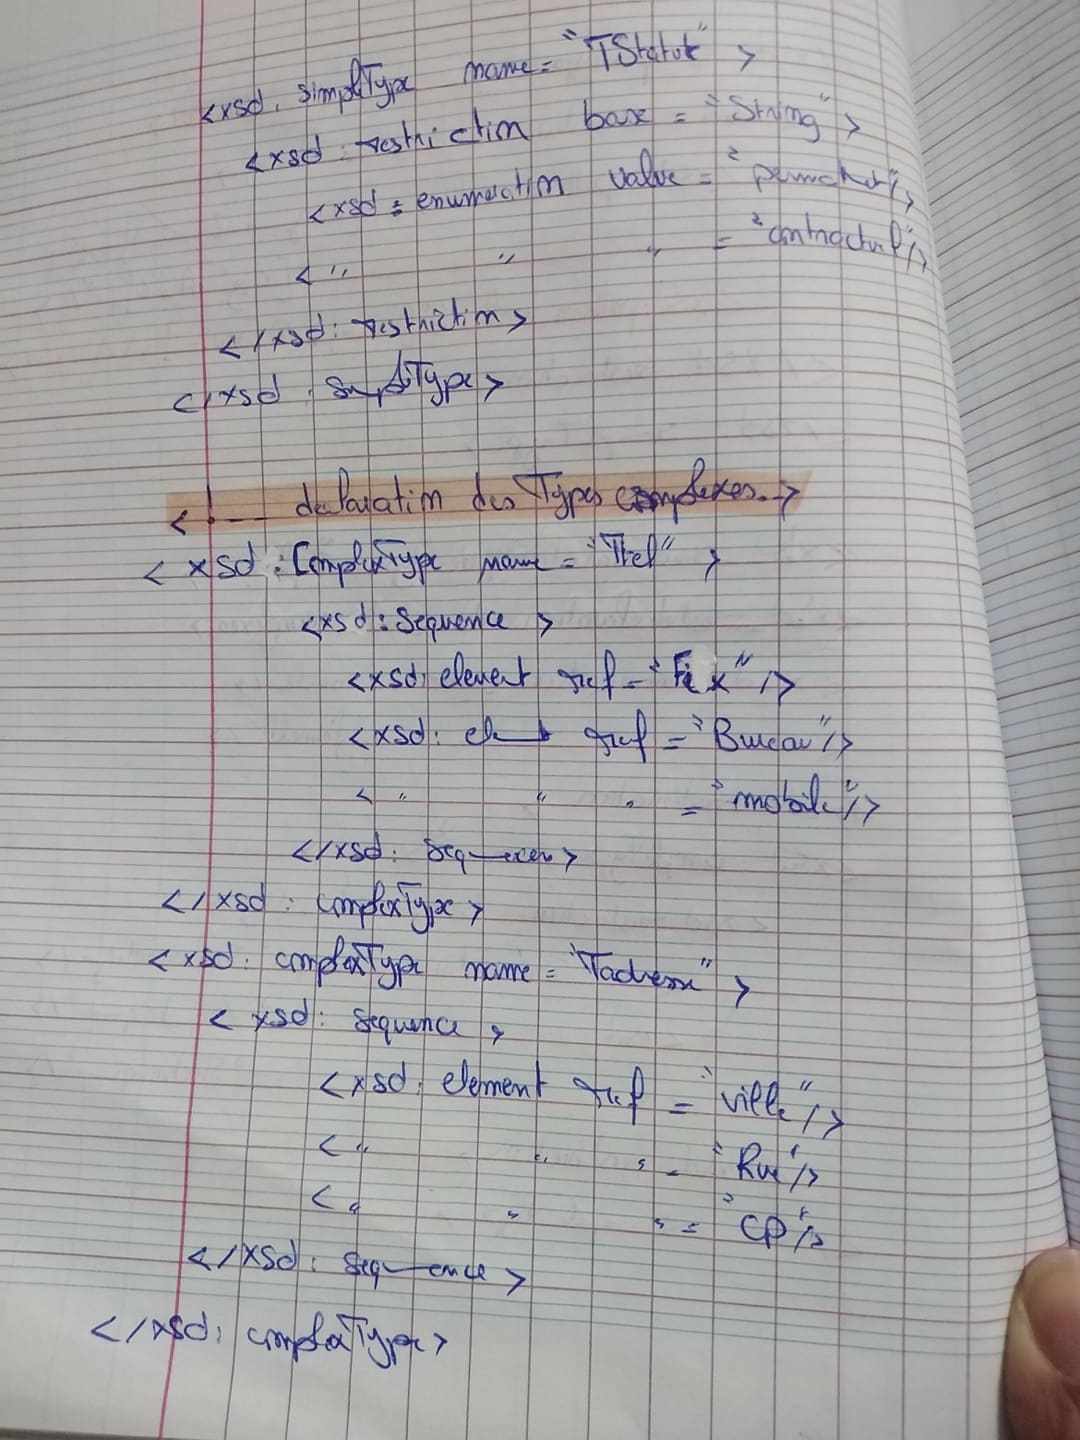 <xsd: simpleType name = "TStatut" >
<xsd: restriction base = "String" >
<xsd: enumeration value = "permanent"/>
< " " " = "contractuel"/>
</xsd: restriction>
</xsd: simpleType>
<!-- declaration des Types complexes -->
<xsd: ComplexType name = "Ttel" >
<xsd: Sequence >
<xsd: element ref = "Fix" />
<xsd: element ref = "Bureau"/>
< " " " = "mobile"/>
</xsd: sequence>
</xsd: complexType>
<xsd: complexType name = "Tadresse" >
<xsd: sequence >
<xsd: element ref = "ville"/>
< " " " = "Rue"/>
< " " " = "CP"/>
</xsd: sequence>
</xsd: complexType>